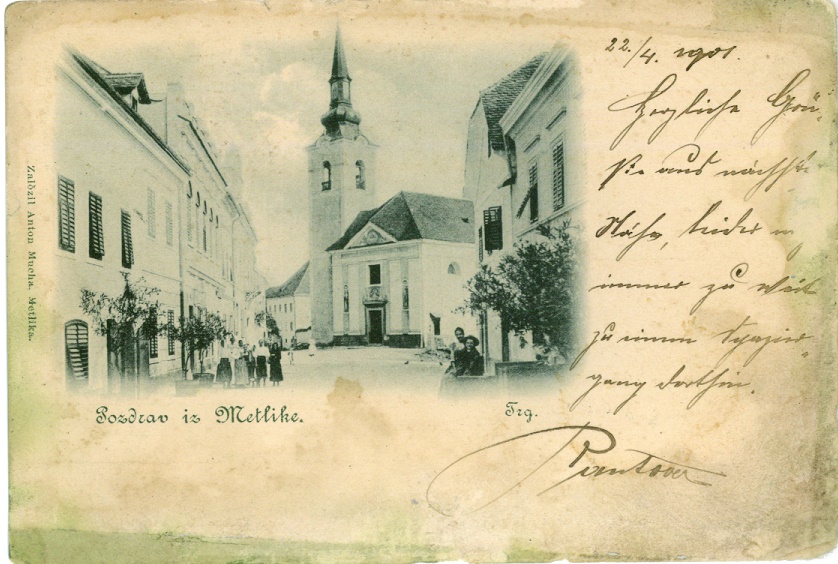 Založil Anton Mucha, Metlika.
Pozdrav iz Metlike.
Trg.
22./4. 1901.
Herzliche Grü-
ße aus nächster
Nähe, leider
immer zu weit
zu einem Spazier-
gang dorthin.